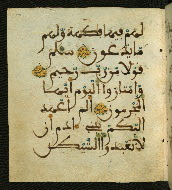 لهم فيها فكهة ولهم
ما يدعون سلم
قولا من رب رحيم
وامتزوا اليوم أيها
المجرمون ألم أعهد
إليكم يبني ءادم أن
لا تعبدوا الشيطن